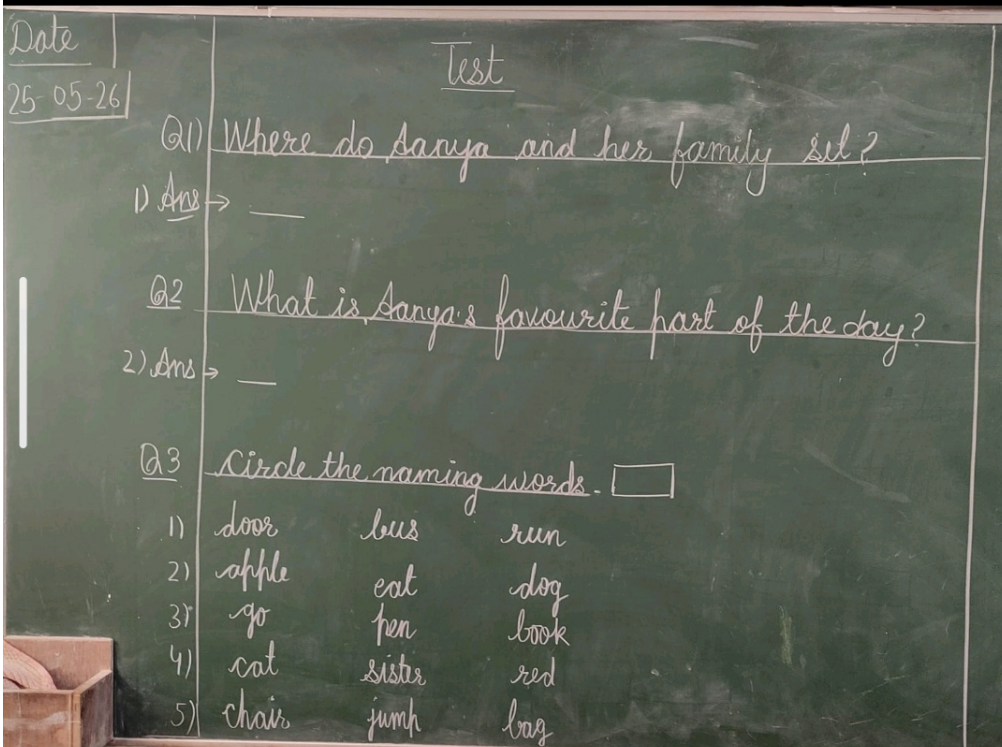 Date
25-05-26
Test
Q1) Where do Aanya and her family sit?
1) Ans → __
Q2 What is Aanya's favourite part of the day?
2) Ans → __
Q3 Circle the naming words.
1) door bus run
2) apple eat dog
3) go pen book
4) cat sister red
5) chair jump bag